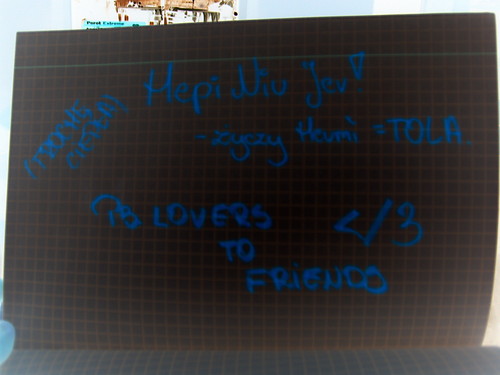 Hepi Niu Jer!
- życzy Hami = TOLA
LOVERS </3
TO
FRIENDS